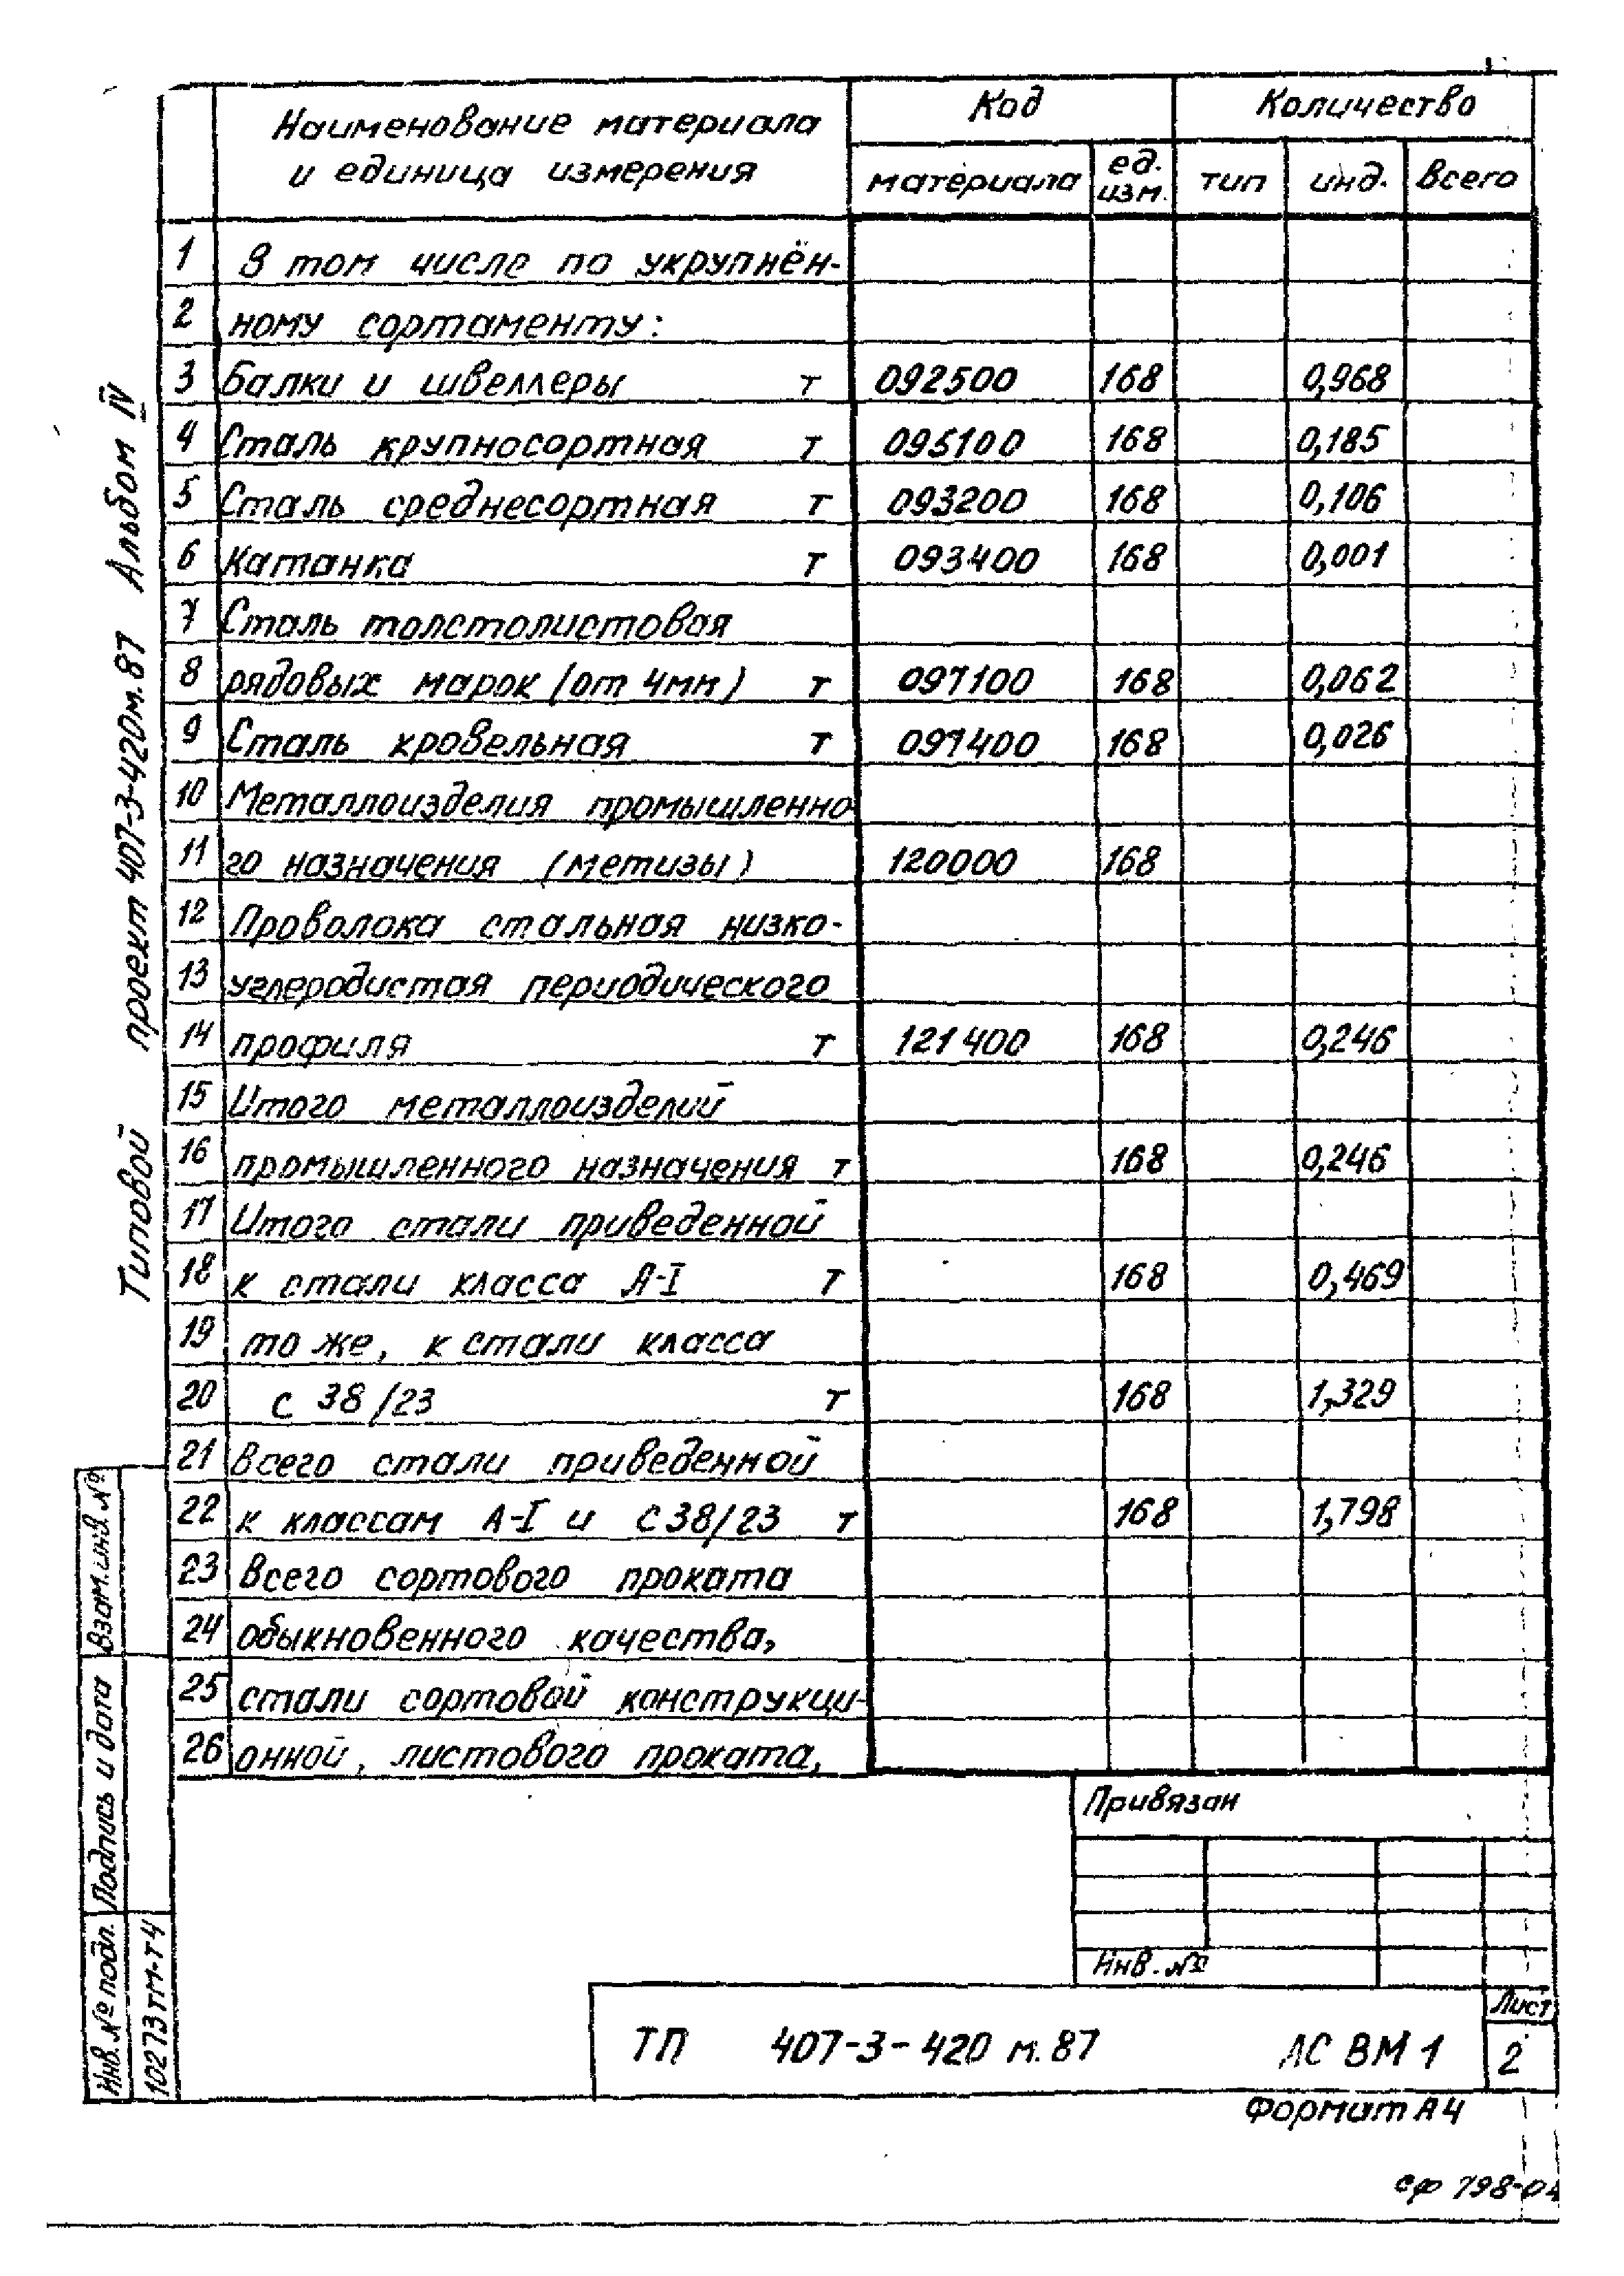 Наименование материала и единица измерения | Код | Количество
материала | ед. изм. | тип | инд. | Всего
1 В том числе по укрупнён-
2 ному сортаменту:
3 Балки и швеллеры т 092500 168 0,968
4 Сталь крупносортная т 095100 168 0,185
5 Сталь среднесортная т 093200 168 0,106
6 Катанка т 093400 168 0,001
7 Сталь толстолистовая
8 рядовых марок (от 4мм) т 097100 168 0,062
9 Сталь кровельная т 097400 168 0,026
10 Металлоизделия промышленно-
11 го назначения (метизы) 120000 168
12 Проволока стальная низко-
13 углеродистая периодического
14 профиля т 121400 168 0,246
15 Итого металлоизделий
16 промышленного назначения т 168 0,246
17 Итого стали приведенной
18 к стали класса А-I т 168 0,469
19 то же, к стали класса
20 С 38/23 т 168 1,329
21 Всего стали приведенной
22 к классам А-I и С38/23 т 168 1,798
23 Всего сортового проката
24 обыкновенного качества,
25 стали сортовой конструкци-
26 онной, листового проката,
Типовой проект 407-3-420м.87 Альбом IV
Взам.инв.№
Подпись и дата
Инв.№ подл.
10273тм-т4
Привязан
Инв.№
ТП 407-3-420 м.87 АС ВМ 1
Лист
2
Формат А4
сф 798-04